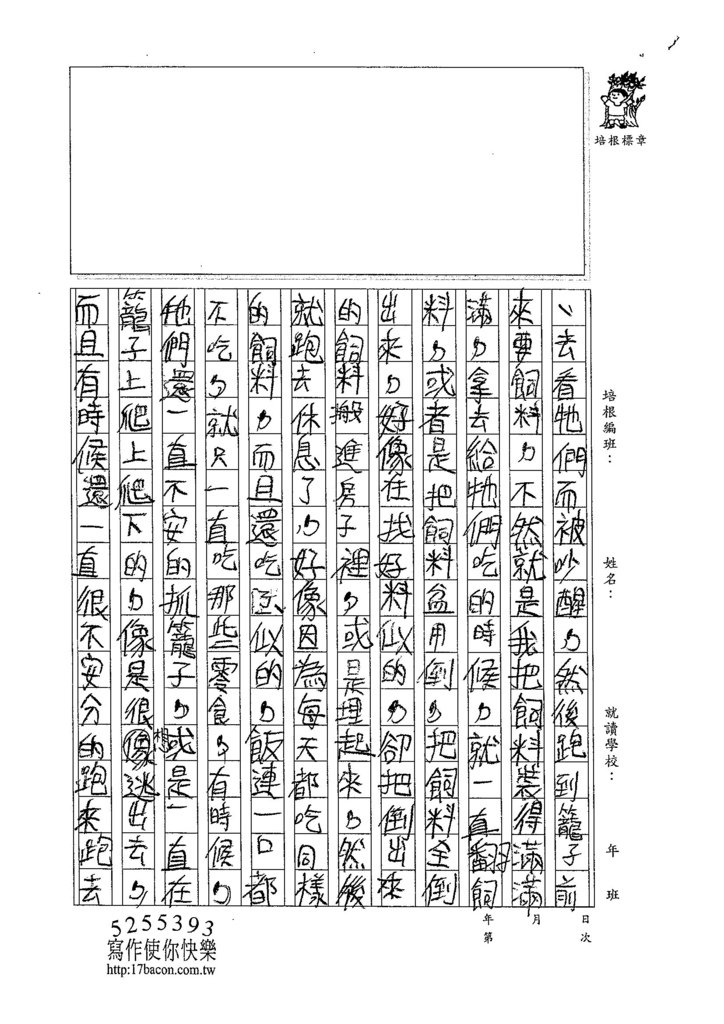 培根標章
培根編班：
姓名：
就讀學校：
年 班
日次
月
年第
、去看牠們而被吵醒，然後跑到籠子前
來要飼料，不然就是我把飼料裝得滿滿
滿，拿去給牠們吃的時候，就一直翻飼
料，或者是把飼料盆用倒，把飼料全倒
出來，好像在找好料似的，卻把倒出來
的飼料搬進房子裡，或是埋起來，然後
就跑去休息了，好像因為每天都吃同樣
的飼料，而且還吃 似的，飯連一口都
不吃，就只一直吃那些零食，有時候，
牠們還一直不安的抓籠子，或是一直在
籠子上爬上爬下的，像是很想逃出去，
而且有時候還一直很不安分的跑來跑去
5255393
寫作使你快樂
http:17bacon.com.tw